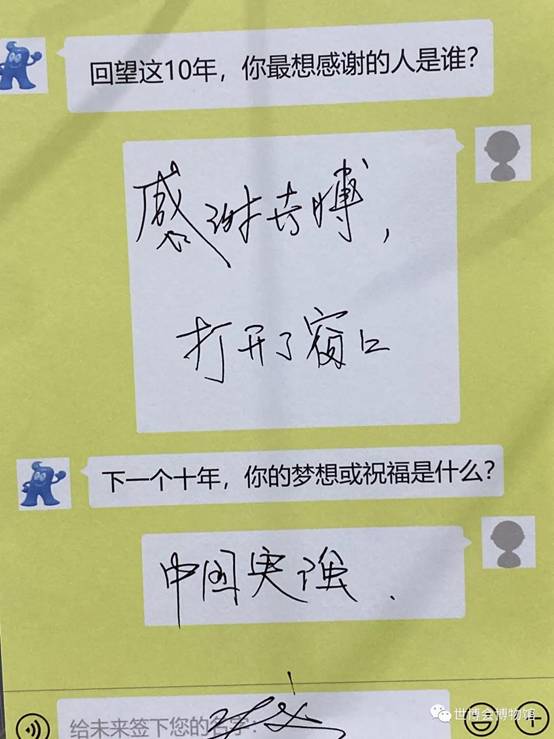 回望这10年，你最想感谢的人是谁？
感谢世博，
打开了窗口
下一个十年，你的梦想或祝福是什么？
中国 强.
给未来签下您的名字：
世博会博物馆